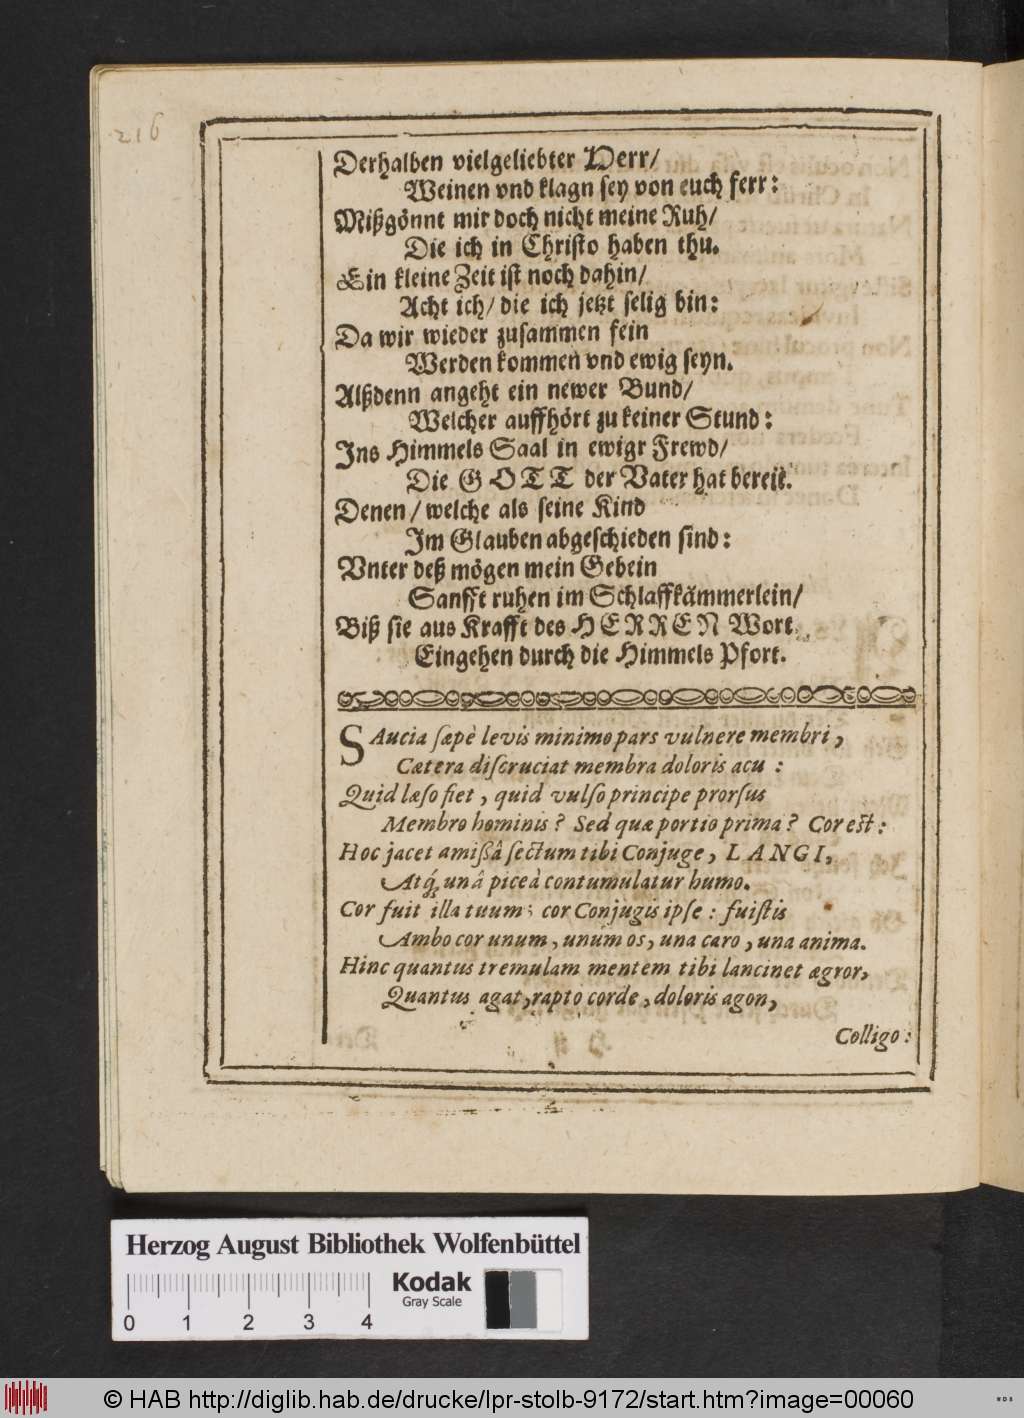 216
Derhalben vielgeliebter Herr/
Weinen vnd klagn sey von euch ferr:
Mißgönnt mir doch nicht meine Ruh/
Die ich in Christo haben thu.
Ein kleine Zeit ist noch dahin/
Acht ich/ die ich jetzt selig bin:
Da wir wieder zusammen fein
Werden kommen vnd ewig seyn.
Alßdenn angeht ein newer Bund/
Welcher auffhört zu keiner Stund:
Ins Himmels Saal in ewigr Frewd/
Die GOTT der Vater hat bereit.
Denen/ welche als seine Kind
Im Glauben abgeschieden sind:
Vnter deß mögen mein Gebein
Sanfft ruhen im Schlaffkämmerlein/
Biß sie aus Krafft des HERREN Wort
Eingehen durch die Himmels Pfort.
SAucia sæpè levis minimo pars vulnere membri,
Cætera discruciat membra doloris acu:
Quid læso fiet, quid vulso principe prorsus
Membro hominis? Sed quæ portio prima? Cor est:
Hoc jacet amißâ sectum tibi Conjuge, LANGI,
Atq; unâ piceà contumulatur humo.
Cor fuit illa tuum; cor Conjugis ipse: fuistis
Ambo cor unum, unum os, una caro, una anima.
Hinc quantus tremulam mentem tibi lancinet ægror,
Quantus agat, rapto corde, doloris agon,
Colligo:
Herzog August Bibliothek Wolfenbüttel
Kodak
Gray Scale
0 1 2 3 4
© HAB http://diglib.hab.de/drucke/lpr-stolb-9172/start.htm?image=00060